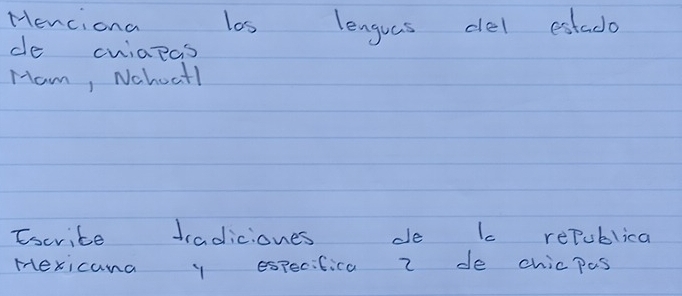 Menciona los lenguas del estado
de chiapas
Mam, Nahuatl
Escribe tradiciones de la republica
Mexicana y especifica 2 de chiapas